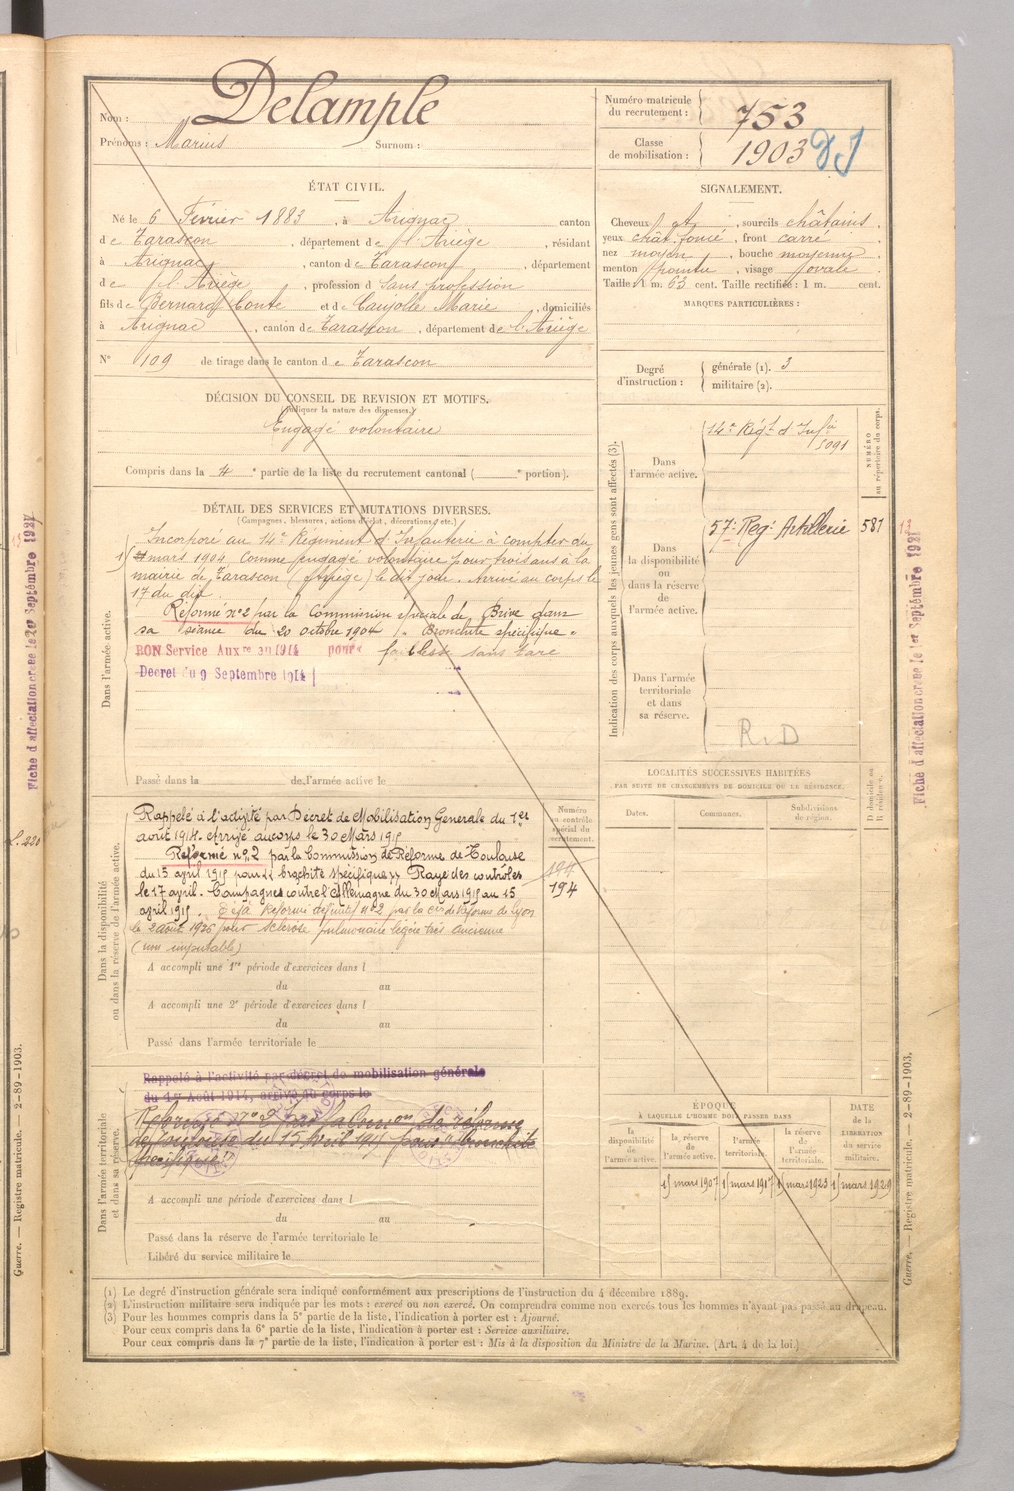 Nom : Delample
Prénoms : Marius Surnom :
Numéro matricule
du recrutement : 753
Classe
de mobilisation : 1903
ÉTAT CIVIL.
Né le 6 Février 1883, à Arignac canton
de Tarascon, département de l'Ariège, résidant
à Arignac, canton de Tarascon, département
de l'Ariège, profession d sans profession
fils de Bernard Conte et de Caujolle Marie, domiciliés
à Arignac, canton de Tarascon, département de l'Ariège
N° 109 de tirage dans le canton de Tarascon
SIGNALEMENT.
Cheveux et, sourcils châtains,
yeux chât. foncé, front carré
nez moyen, bouche moyenne,
menton pointu, visage ovale.
Taille : 1 m. 63 cent. Taille rectifiée : 1 m. cent.
MARQUES PARTICULIÈRES :
Degré
d'instruction :
générale (1). 3
militaire (2).
DÉCISION DU CONSEIL DE REVISION ET MOTIFS.
(Indiquer la nature des dispenses.)
Engagé volontaire
Compris dans la 4e partie de la liste du recrutement cantonal ( e portion).
DÉTAIL DES SERVICES ET MUTATIONS DIVERSES.
(Campagnes, blessures, actions d'éclat, décorations, etc.)
Dans l'armée active.
Incorporé au 14e Régiment d'Infanterie à compter du
mars 1904 comme engagé volontaire pour trois ans à la
mairie de Tarascon (Ariège) le dit jour. Arrivé au corps le
17 du dit.
Réformé n°2 par la Commission spéciale de Brive dans
sa séance du 20 octobre 1904 "Bronchite spécifique"
BON Service Auxre en 1914 pour faiblesse sans tare
Décret du 9 Septembre 1914
Passé dans la de l'armée active le
Indication des corps auxquels les jeunes gens sont affectés (3).
NUMÉRO
au répertoire du corps.
Dans
l'armée active.
14e Régt d'Infie
5091
Dans
la disponibilité
ou
dans la réserve
de
l'armée active.
57e Reg. Artillerie 581
Dans l'armée
territoriale
et dans
sa réserve.
R. D
LOCALITÉS SUCCESSIVES HABITÉES
PAR SUITE DE CHANGEMENTS DE DOMICILE OU DE RÉSIDENCE.
Dates.
Communes.
Subdivisions
de région.
D domicile ou
R résidence.
Dans la disponibilité
ou dans la réserve de l'armée active.
Numéro
au contrôle
spécial du
recrutement.
194
194
Rappelé à l'activité par Décret de Mobilisation Générale du 1er
août 1914. Arrivé au corps le 30 Mars 1915
Réformé n°2 par la Commission de Réforme de Toulouse
du 15 avril 1915 pour "brochite spécifique" Rayé des contrôles
le 17 avril. Campagnes contre l'Allemagne du 30 Mars 1915 au 15
avril 1915. Déjà Réformé définitif n°2 par la Con de Réforme de Lyon
le 2 août 1926 pour sclérose pulmonaire légère très ancienne
(non imputable)
A accompli une 1re période d'exercices dans l
du au
A accompli une 2e période d'exercices dans l
du au
Passé dans l'armée territoriale le
Dans l'armée territoriale
et dans sa réserve.
Rappelé à l'activité par décret de mobilisation générale
du 1er Août 1914, arrivé au corps le
Réformé n° 2 par la Comon de réforme
de Toulouse du 15 Avril 1915 pour "bronchite
spécifique"
A accompli une période d'exercices dans l
du au
Passé dans la réserve de l'armée territoriale le
Libéré du service militaire le
ÉPOQUE
À LAQUELLE L'HOMME DOIT PASSER DANS
DATE
de la
LIBÉRATION
du service
militaire.
la
disponibilité
de
l'armée active.
la réserve
de
l'armée active.
l'armée
territoriale.
la réserve
de
l'armée
territoriale.
15 mars 1907 15 mars 1917 15 mars 1923 15 mars 1929
(1) Le degré d'instruction générale sera indiqué conformément aux prescriptions de l'instruction du 4 décembre 1889.
(2) L'instruction militaire sera indiquée par les mots : exercé ou non exercé. On comprendra comme non exercés tous les hommes n'ayant pas passé au drapeau.
(3) Pour les hommes compris dans la 5e partie de la liste, l'indication à porter est : Ajourné.
Pour ceux compris dans la 6e partie de la liste, l'indication à porter est : Service auxiliaire.
Pour ceux compris dans la 7e partie de la liste, l'indication à porter est : Mis à la disposition du Ministre de la Marine. (Art. 4 de la loi.)
Fiche d'affectation créée le 1er Septembre 1927
Fiche d'affectation créée le 1er Septembre 1927
Guerre. — Registre matricule. — 2-89-1903.
Guerre. — Registre matricule. — 2-89-1903.